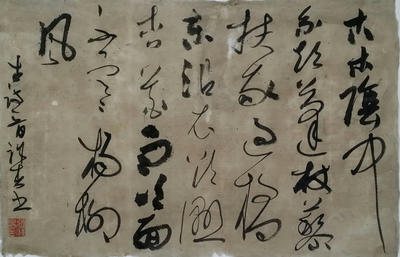 古木陰中
系短蓬杖藜
扶我過橋
東沾衣欲濕
杏花雨吹面
不寒楊柳
風
古詩一首